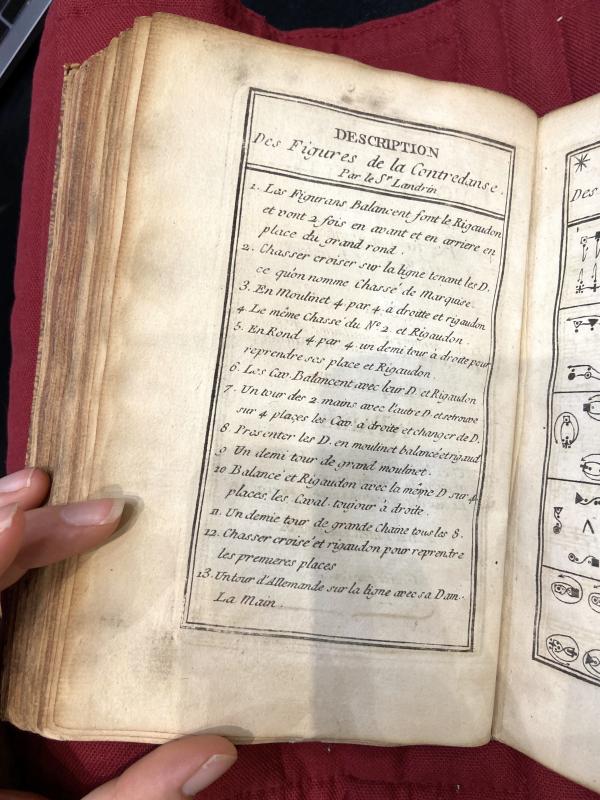 DESCRIPTION
Des Figures de la Contredanse.
Par le Sr Landrin
1. Las Figurans Balancent font le Rigaudon
et vont 2 fois en avant et en arriere en
place du grand rond.
2. Chasser croiser sur la ligne tenant les D.
ce qu'on nomme Chassé de Marquise.
3. En Moulinet 4 par 4 à droitte et rigaudon
4 Le même Chassé du No 2. et Rigaudon.
5. En Rond 4 par 4. un demi tour à droite pour
reprendre ses place et Rigaudon
6. Les Cav. Balancent avec leur D. et Rigaudon
7. Un tour des 2. mains avec l'autre D. et se trouve
sur 4 places les Cav. à droite et changer de D.
8 Presenter les D. en moulinet balancé et rigaud
9 Un demi tour de grand moulinet.
10 Balancé et Rigaudon avec la même D sur 4.
places, les Caval. toujour à droite.
11. Un demie tour de grande Chaine tous les 8.
12. Chasser croisé et rigaudon pour reprendre
les premieres places
13. Un tour d'Allemande sur la ligne avec sa Dam.
La Main.
Des
1